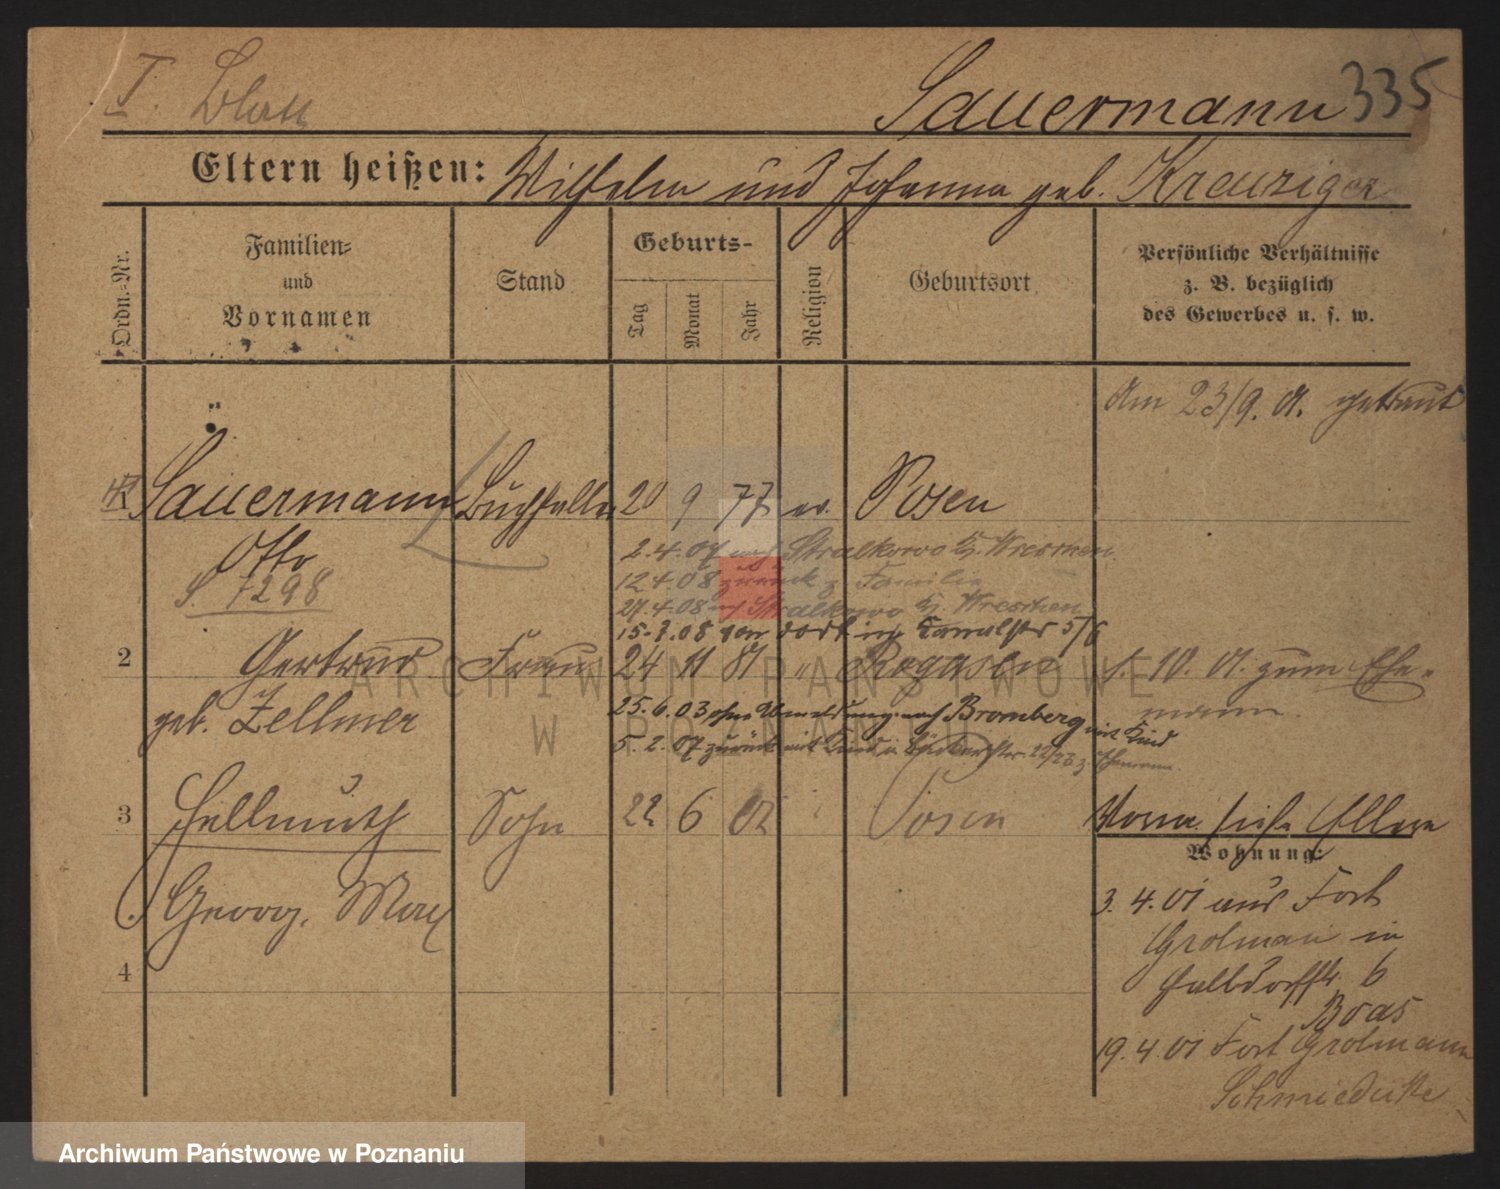 I. Blatt
Sauermann 335
Eltern heißen: Wilhelm und Johanna geb. Kreuziger
Ordn.-Nr.
Familien-
und
Vornamen
Stand
Geburts-
Tag
Monat
Jahr
Religion
Geburtsort
Persönliche Verhältnisse
z. B. bezüglich
des Gewerbes u. s. w.
Am 23/9. 01. getraut
Sauermann Buchhalter 20 9 77 ev. Posen
Otto
S. 7298
2.4.07 nach Stralkowo Kr. Wreschen
12.4.08 zurück z. Familie
27.4.08 nach Stralkowo Kr. Wreschen
15.7.08 von dort in Kanalstr 5/6
2 Gertrud Frau 24 11 81 " Rogasen 1. 10. 01. zum Ehe-
mann.
geb. Zellmer
25.6.03 ohne Umeldung nach Bromberg mit Kind
5.2.07 zurück mit Kind in 22/23 z. Ehemann
3 Hellmuth Sohn 22 6 02 Posen
Vorm. siehe Eltern
Wohnung:
Georg, Max
3. 4. 01 aus Fort
Grolman in
Halbdorfstr. 6
Boas
4
19. 4. 01 Fort Grolmann
Schmiedicke
ARCHIWUM PAŃSTWOWE
W POZNANIU
Archiwum Państwowe w Poznaniu